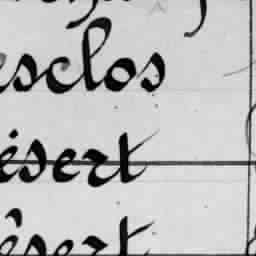 esclos
ésert
ésert